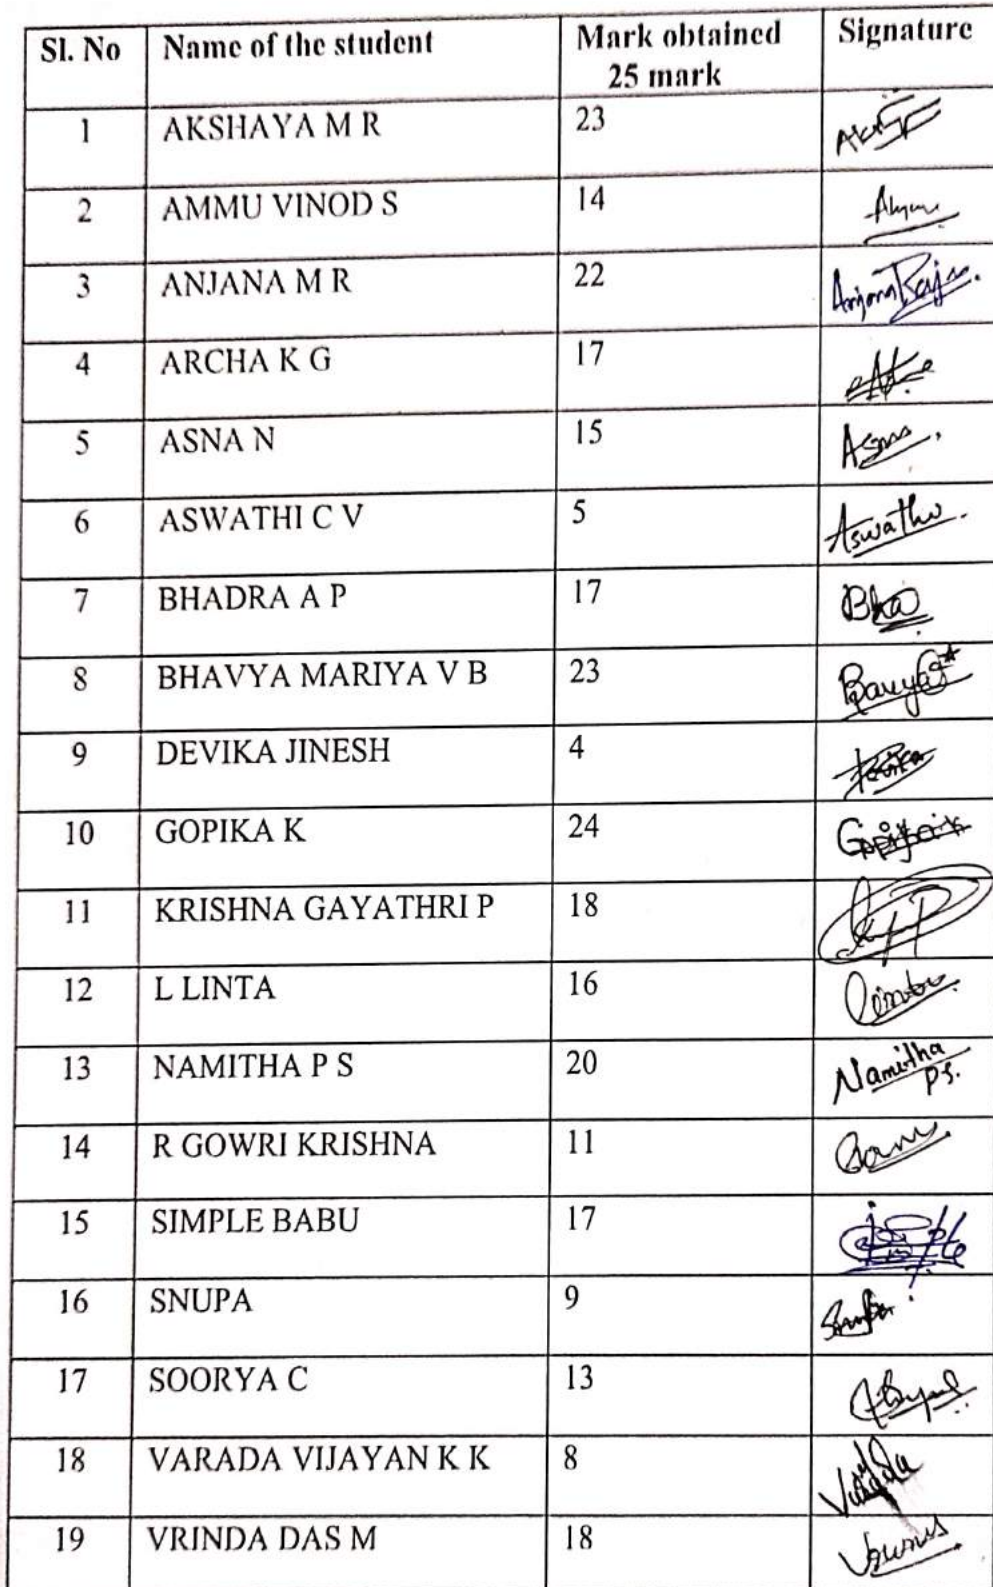 Sl. No Name of the student Mark obtained Signature
25 mark
1 AKSHAYA M R 23
2 AMMU VINOD S 14
3 ANJANA M R 22
4 ARCHA K G 17
5 ASNA N 15
6 ASWATHI C V 5
7 BHADRA A P 17
8 BHAVYA MARIYA V B 23
9 DEVIKA JINESH 4
10 GOPIKA K 24
11 KRISHNA GAYATHRI P 18
12 L LINTA 16
13 NAMITHA P S 20 Namitha
P S.
14 R GOWRI KRISHNA 11
15 SIMPLE BABU 17
16 SNUPA 9
17 SOORYA C 13
18 VARADA VIJAYAN K K 8 Varada
19 VRINDA DAS M 18